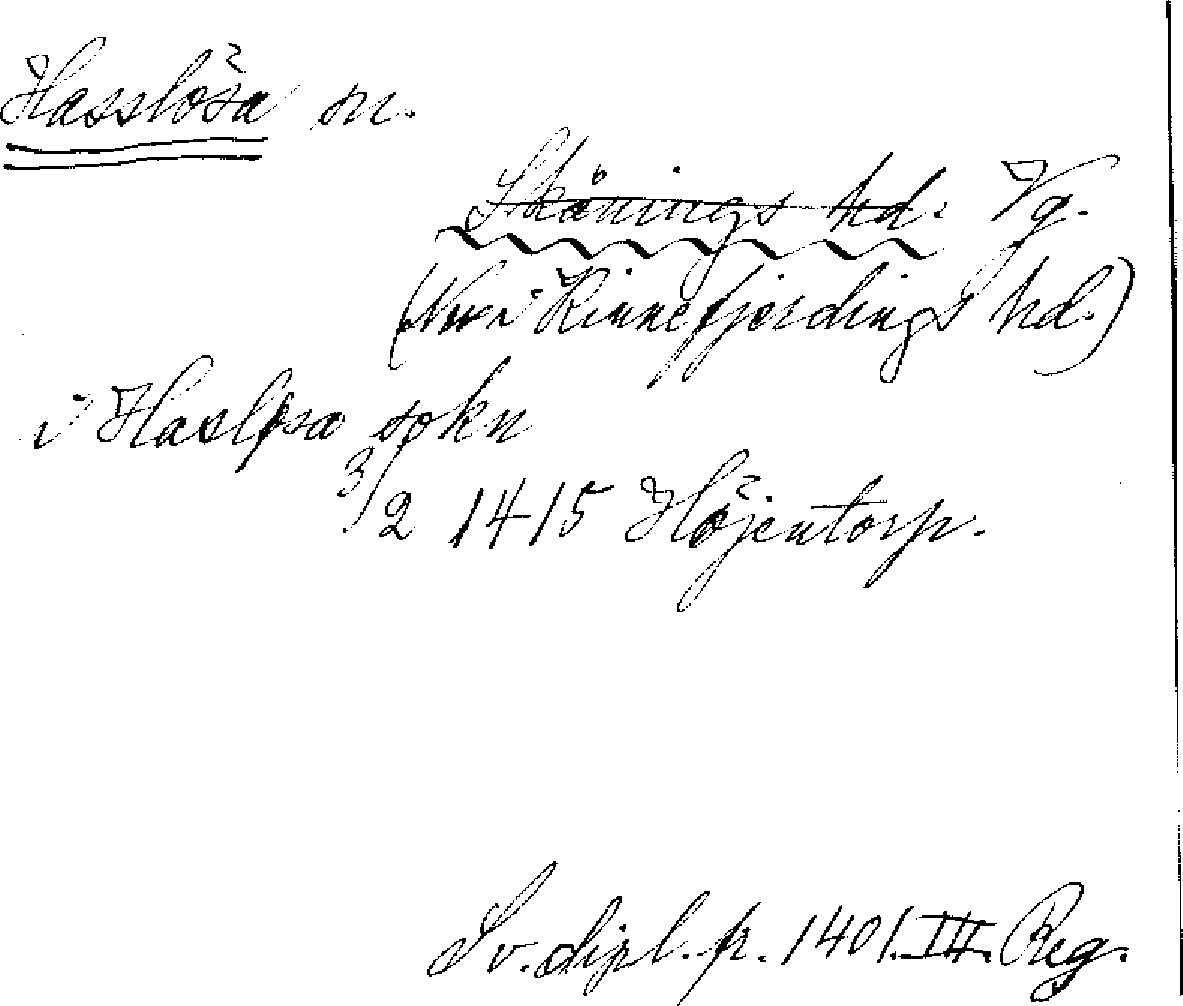 Hasslösa sn.
Skånings hd. Vg.
(Nu i Kinnefjerdings hd.)
i Hasløsa sokn
3/2 1415 Höjentorp.
Sv. dipl. fr. 1401. III. Reg.